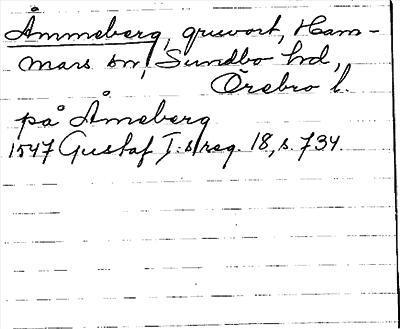 Åmmeberg, gruvort, Ham-
mars sn, Sundbo hd,
Örebro l.
på Åmeberg
1547 Gustaf I:s reg. 18, s. 734.